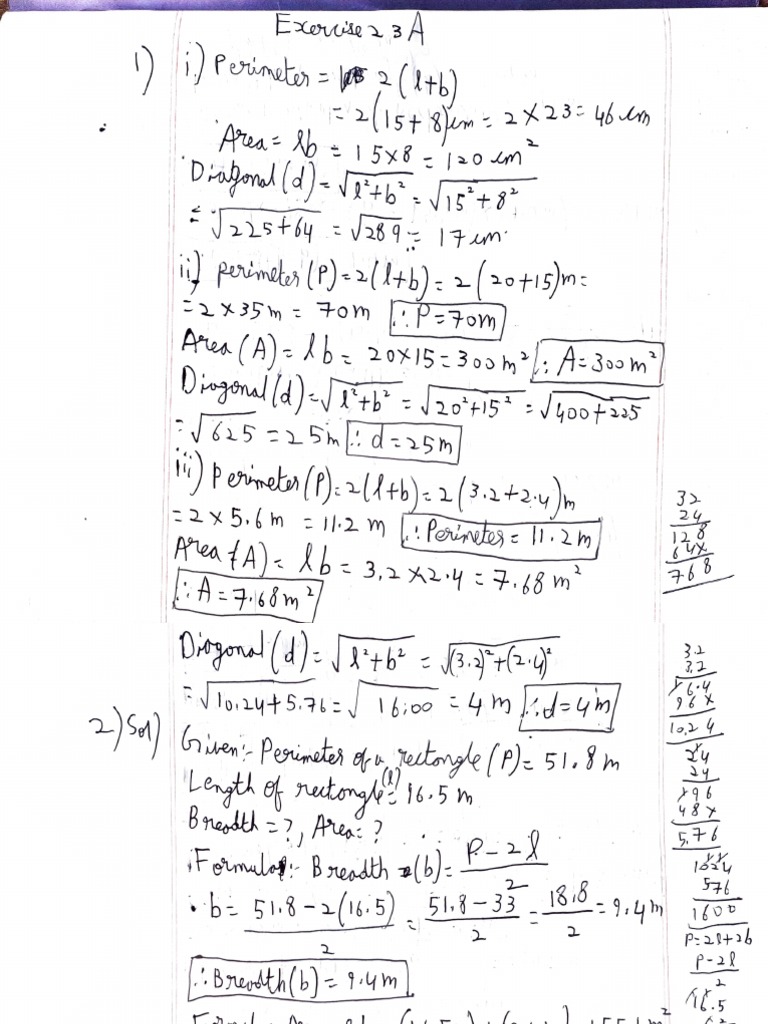 Exercise 23A
1) i) Perimeter = 2(l+b)
= 2(15+8)cm = 2×23 = 46 cm
Area = lb = 15×8 = 120 cm²
Diagonal (d) = √l²+b² = √15²+8²
= √225+64 = √289 = 17 cm.
ii) perimeter (P) = 2(l+b) = 2(20+15)m =
= 2×35m = 70m ∴P=70m
Area (A) = lb = 20×15 = 300m² ∴A=300m²
Diagonal (d) = √l²+b² = √20²+15² = √400+225
= √625 = 25m ∴d=25m
iii) Perimeter (P) = 2(l+b) = 2(3.2+2.4)m
= 2×5.6m = 11.2 m ∴Perimeter = 11.2m
Area (A) = lb = 3.2×2.4 = 7.68 m²
∴A = 7.68m²
32
24
128
64×
768
Diagonal (d) = √l²+b² = √(3.2)²+(2.4)²
= √10.24+5.76 = √16.00 = 4 m ∴d=4m
2) Sol) Given:- Perimeter of a rectangle (P) = 51.8 m
Length of rectangle (l) = 16.5 m
Breadth = ?, Area = ?
Formula:- Breadth (b) = P-2l
2
b = 51.8-2(16.5) = 51.8-33 = 18.8 = 9.4m
2 2 2
∴Breadth (b) = 9.4m
3.2
3.2
6.4
96×
10.24
24
24
96
48×
5.76
1024
576
1600
P=2l+2b
P-2l
2
16.5